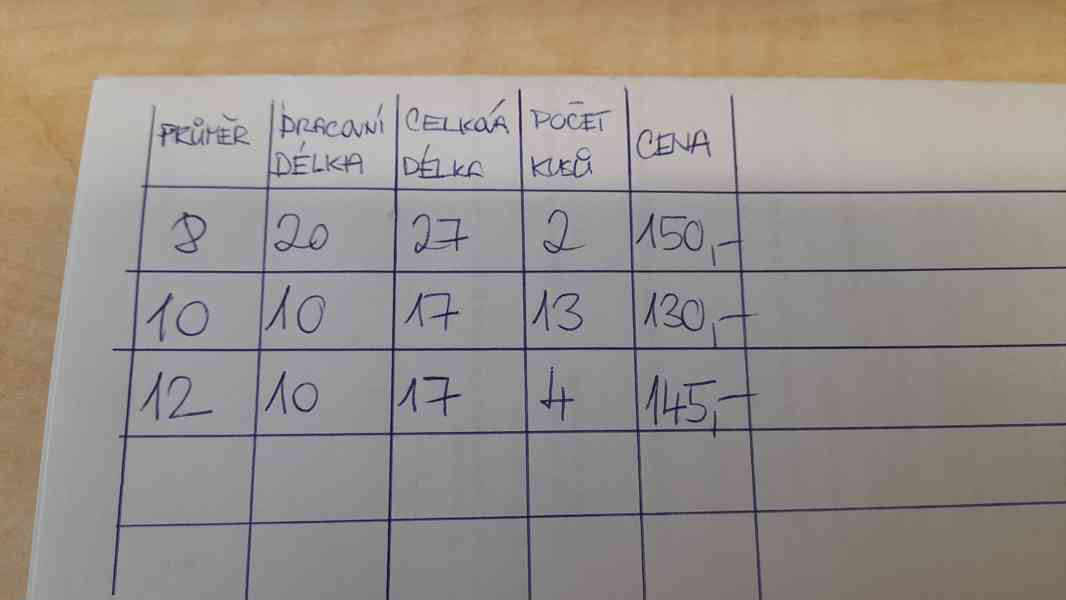 PRŮMĚR PRACOVNÍ DÉLKA CELKOVÁ DÉLKA POČET KUSŮ CENA
8 20 27 2 150,-
10 10 17 13 130,-
12 10 17 4 145,-